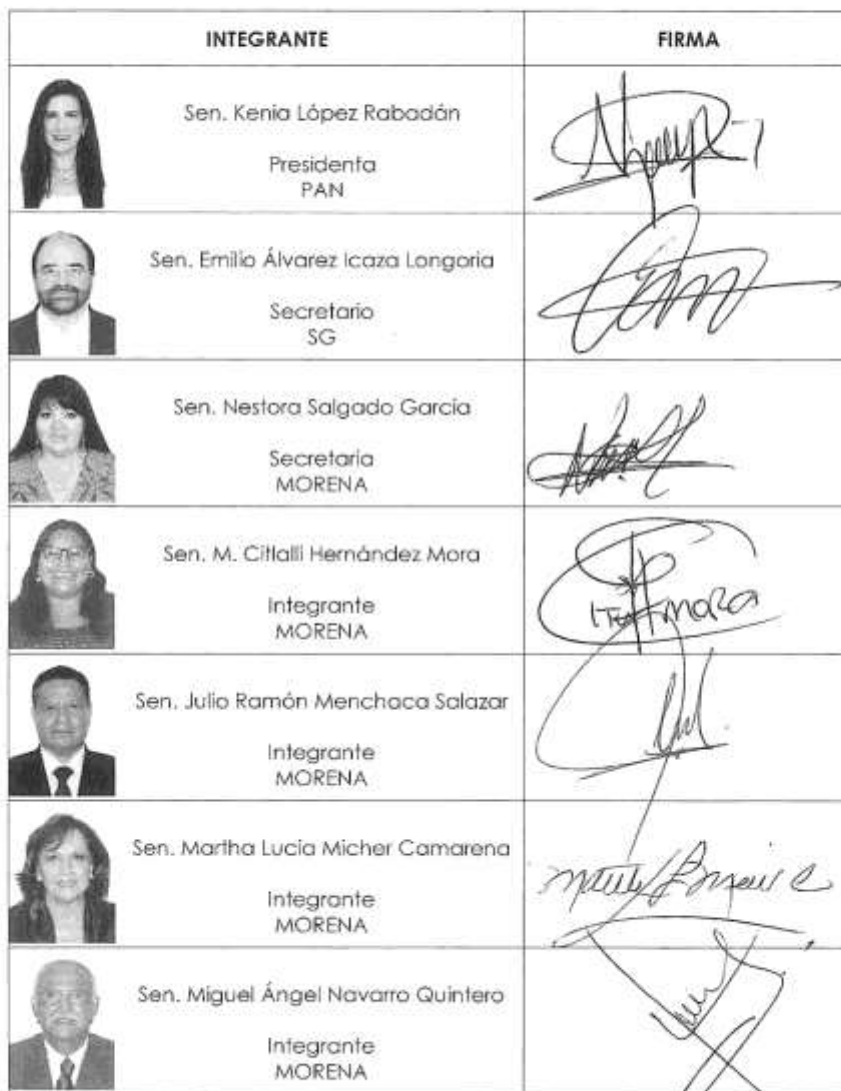 INTEGRANTE FIRMA
Sen. Kenia López Rabadán
Presidenta
PAN
Sen. Emilio Álvarez Icaza Longoria
Secretario
SG
Sen. Nestora Salgado García
Secretaria
MORENA
Sen. M. Citlalli Hernández Mora
Integrante
MORENA
MORA
Sen. Julio Ramón Menchaca Salazar
Integrante
MORENA
Sen. Martha Lucía Micher Camarena
Integrante
MORENA
Sen. Miguel Ángel Navarro Quintero
Integrante
MORENA